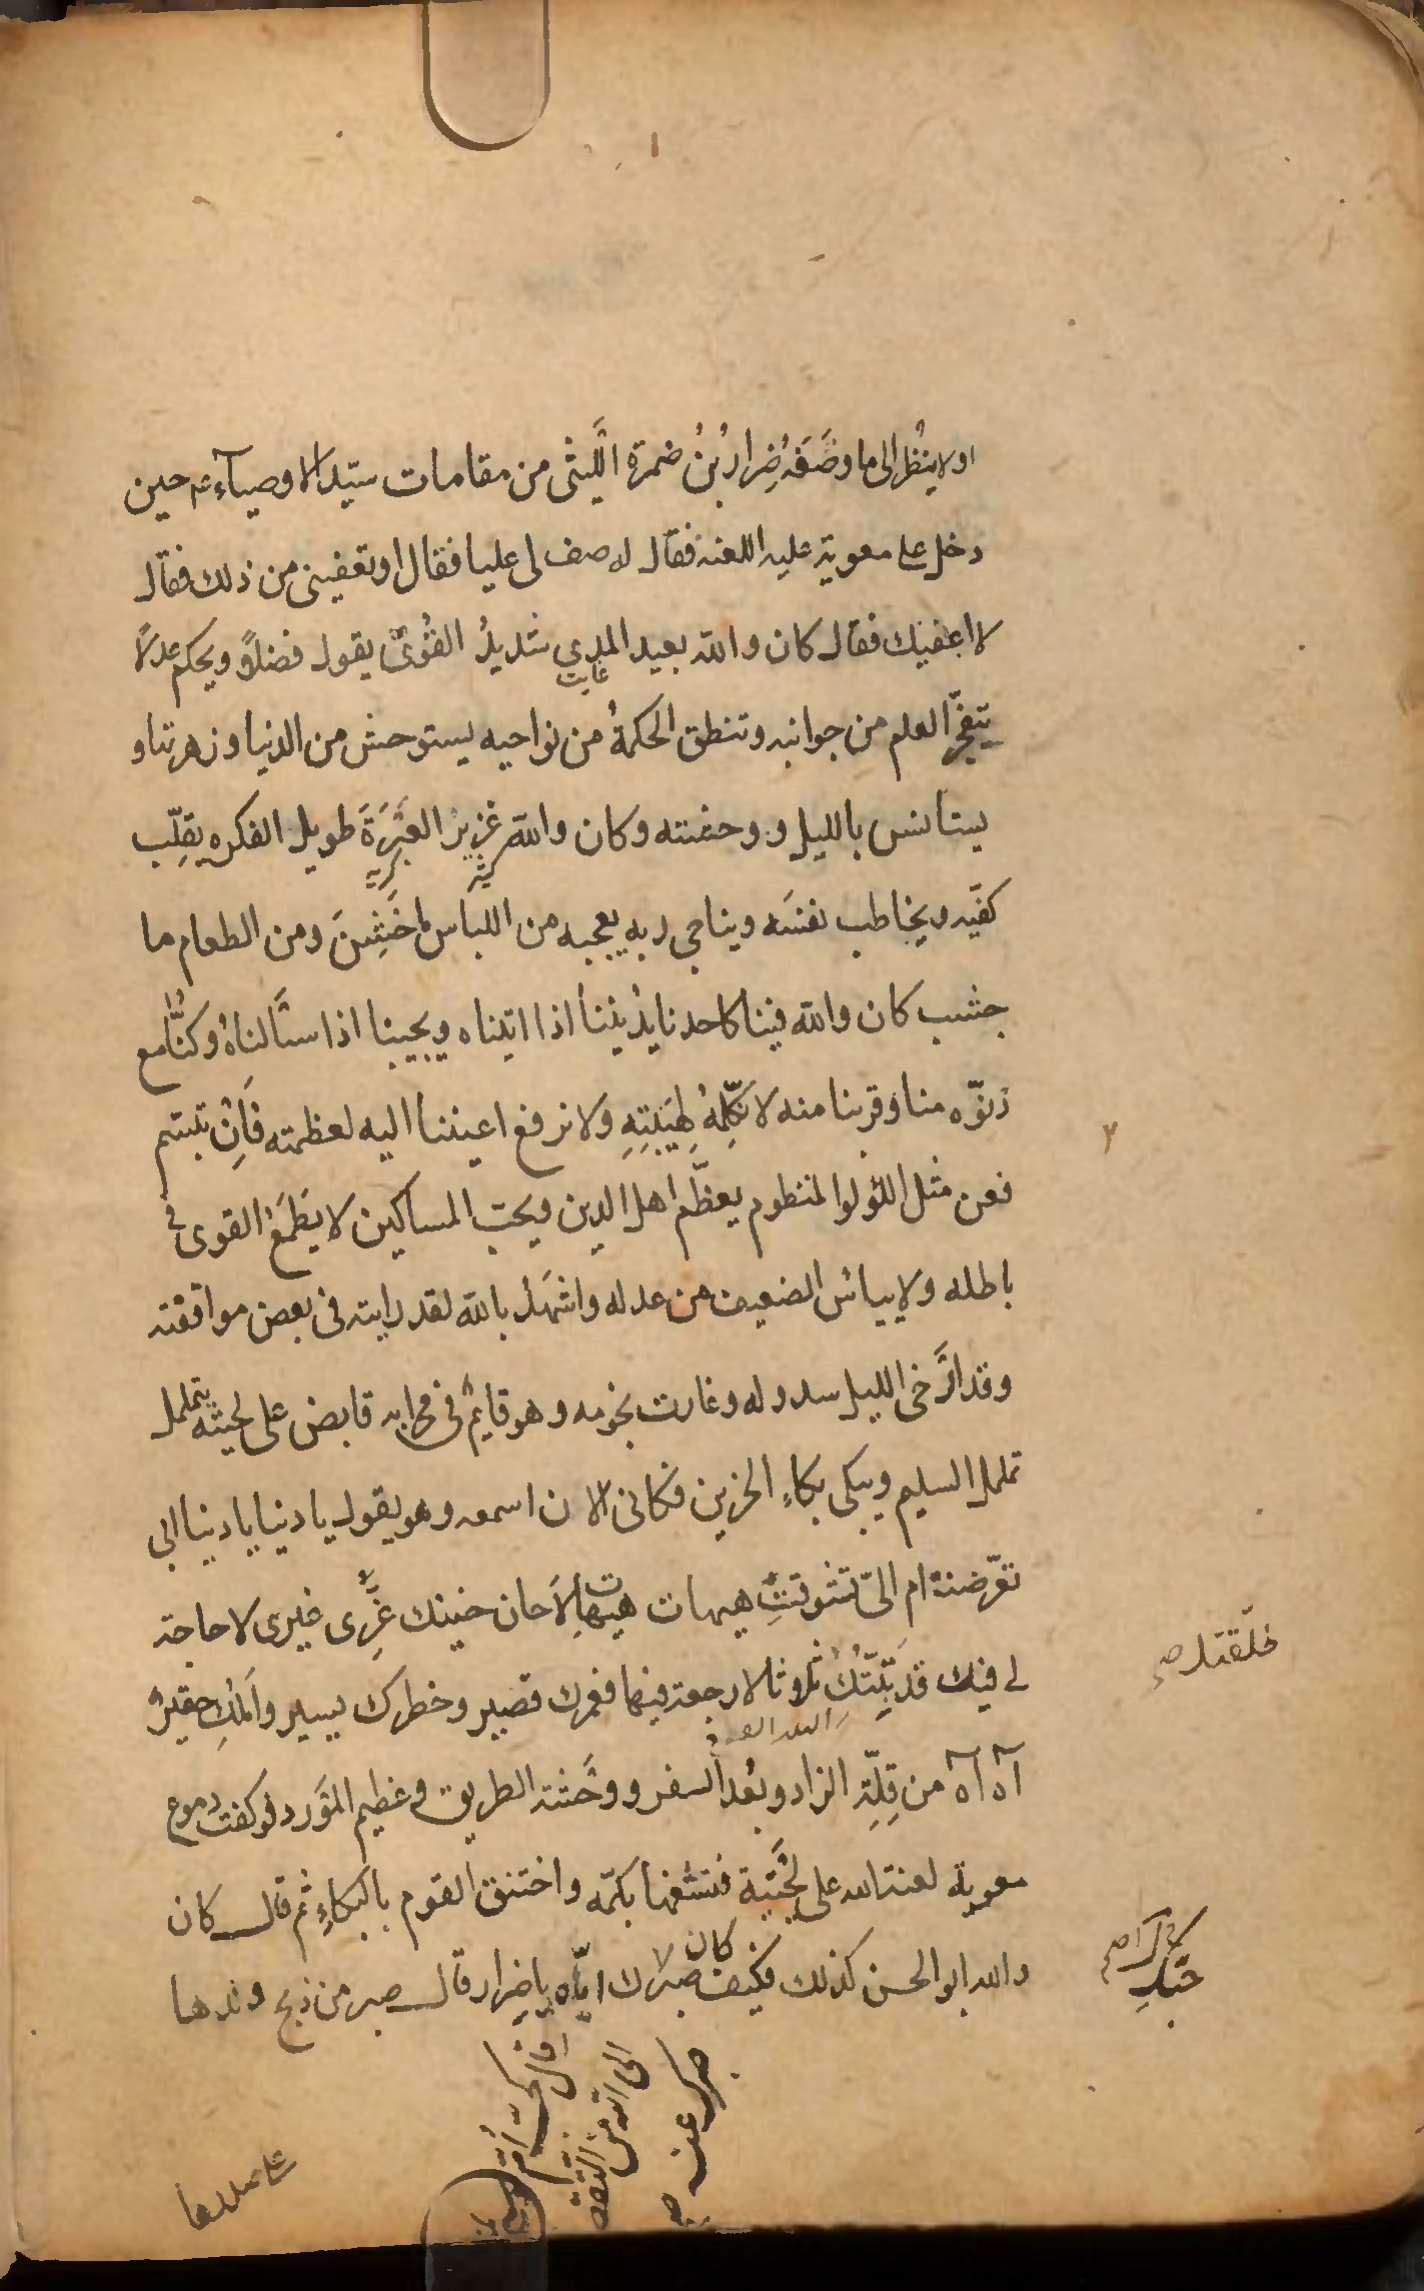 اولا ينظر الى ما وصَفَهُ ضِرارُ بنُ ضمرة اللَّيثى من مقامات سيّد الاوصيآء عم حين
دخل على معوية عليه اللعنة فقال له صف لى عليا فقال اوتعفينى من ذلك فقال
لا اعفيك فقال كان والله بعيد المدى شديدُ القُوىٰ يقول فضلاً ويحكم عدلاً
غايت
يتفجّر العلم من جوانبه وتنطق الحكمةُ من نواحيه يستوحش من الدنيا وزهرتها و
يستأنس بالليل و وحشته وكان والله غزيرُ العَبْرَةَ طويل الفكره يقلِّب
كريه
كفّيه ويخاطب نفسَه ويناجى ربه يعجبه من اللباس ما خَشِنَ ومن الطعام ما
جشب كان والله فينا كاحدنا يُدْنينا اذا اتيناه ويجيبنا اذا سئَالناهُ وكنّا مع
دنوّه منا وقربنا منه لا نكلِّمهُ لِهَيْبَتِهِ ولا نرفع اعيننا اليه لعظمته فَاِنْ تبسّم
فعن مثل اللؤلؤ المنظوم يعظّم اهل الدين ويحبّ المساكين لا يَطْمَعُ القوى فى
باطله ولا ييائس الضعيف من عدله واشهَدُ بالله لقد رايته فى بعض مواقفه
وقد ارَّخى الليل سدوله وغارت نجومه وهو قايمٌ فى محرابه قابض على لحيته يتململ
تململ السليم ويبكى بكاءِ الحزين فكانى الان اسمعه وهو يقول يا دنيا يا دنيا ابى
تعرّضت ام الىّ تشوقتِ هيهات هيهات لاحان حينك غُرِّى غيرى لا حاجة
لى فيك قد بَتَتُّكُ ثلاثا لا رجعة فيها فعمرك قصير وخطرك يسير واملكِ حقيرٌ
طلّقتك صح
آه آه من قِلّة الزاد وبُعدِ السفر ووحشة الطريق وعظيم المَوْرد فوكفت دموع
معوية لعنة الله على لحيته فنشفها بكمّه واختنق القوم بالبكاءِ ثم قال كان
والله ابو الحسن كذلك فكيف كان صبرك ايّاه يا ضِرار قال صبر من ذبح ولدها
حبّك
صبرك عنه
الى الله من التقصير
على صدرها